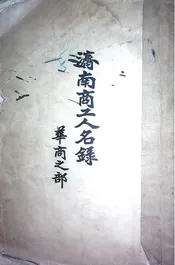 濟南商工人名錄
華商之部